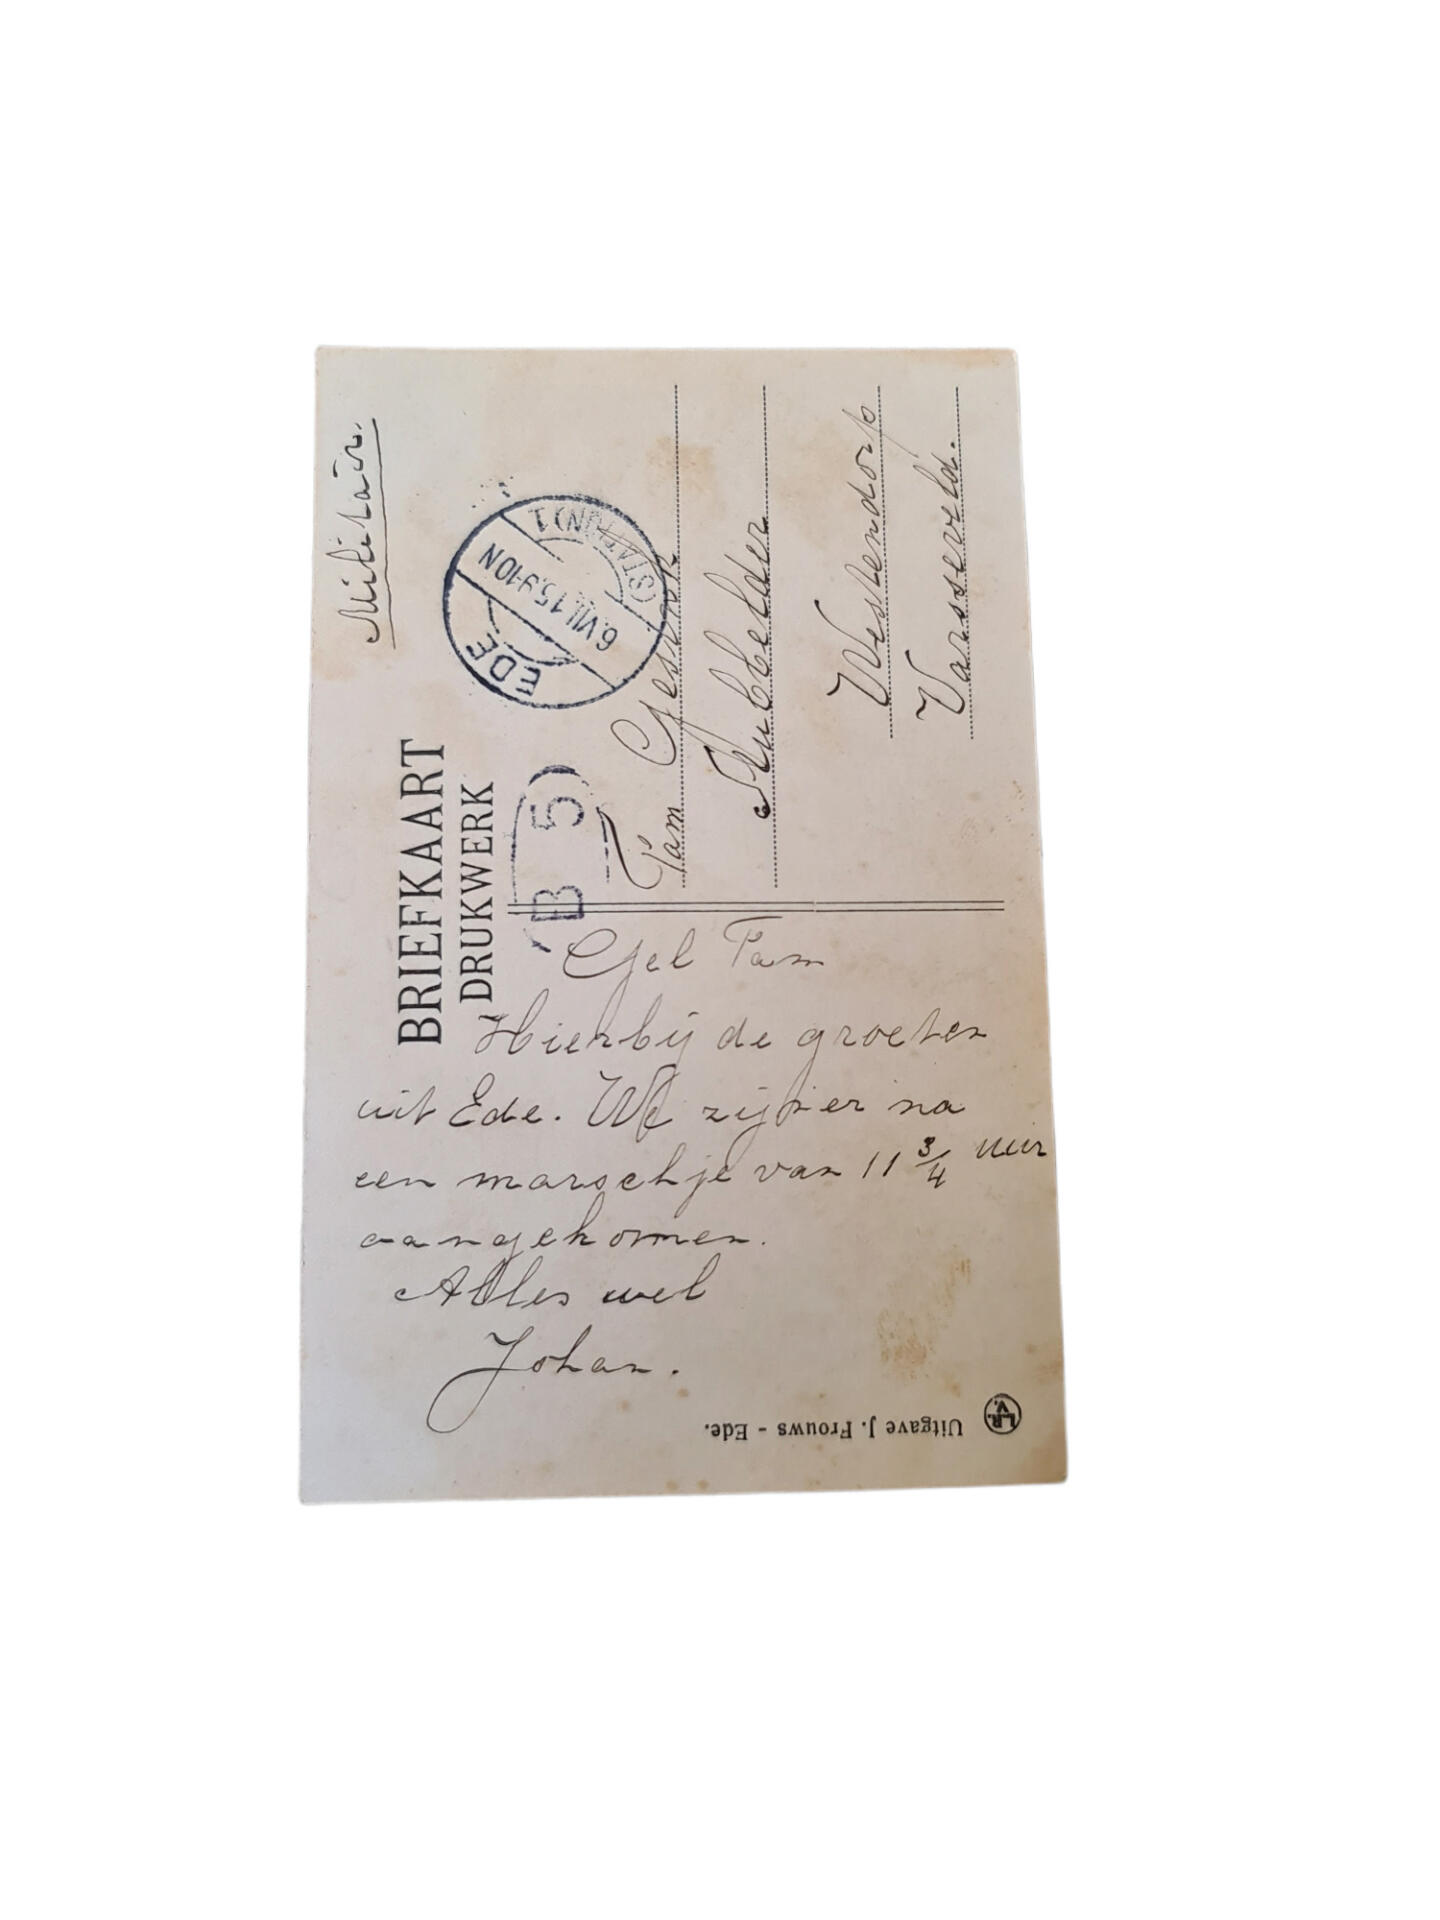 Militair.
BRIEFKAART
DRUKWERK
EDE
6.VII.15.9-10N
(STATION) 1
B 5
Fam Gesink
Westendorp
Varsseveld.
Gel Fam
Hierbij de groeten
uit Ede. We zijn er na
een marschje van 11 3/4 uur
aangekomen.
Alles wel
Johan.
Uitgave J. Frouws - Ede.
L.R.
V.